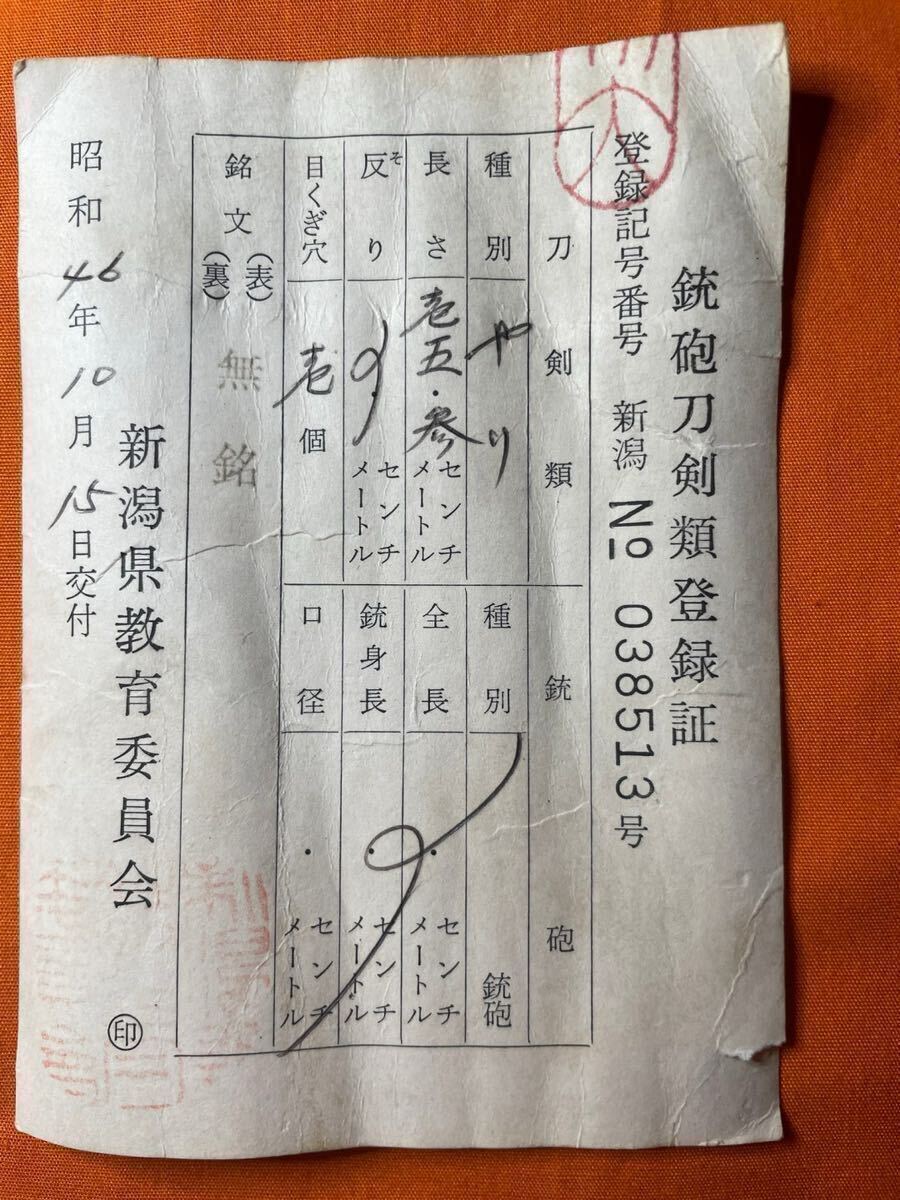 銃砲刀剣類登録証
登録記号番号 新潟 № 038513号
刀剣類
種別 やり
長さ 壱五.参 センチメートル
反り そ センチメートル
目くぎ穴 壱 個
銃砲
種別 銃砲
全長 . センチメートル
銃身長 . センチメートル
口径 . センチメートル
銘文 (表) (裏) 無銘
新潟県教育委員会 ㊞
昭和46年10月15日交付